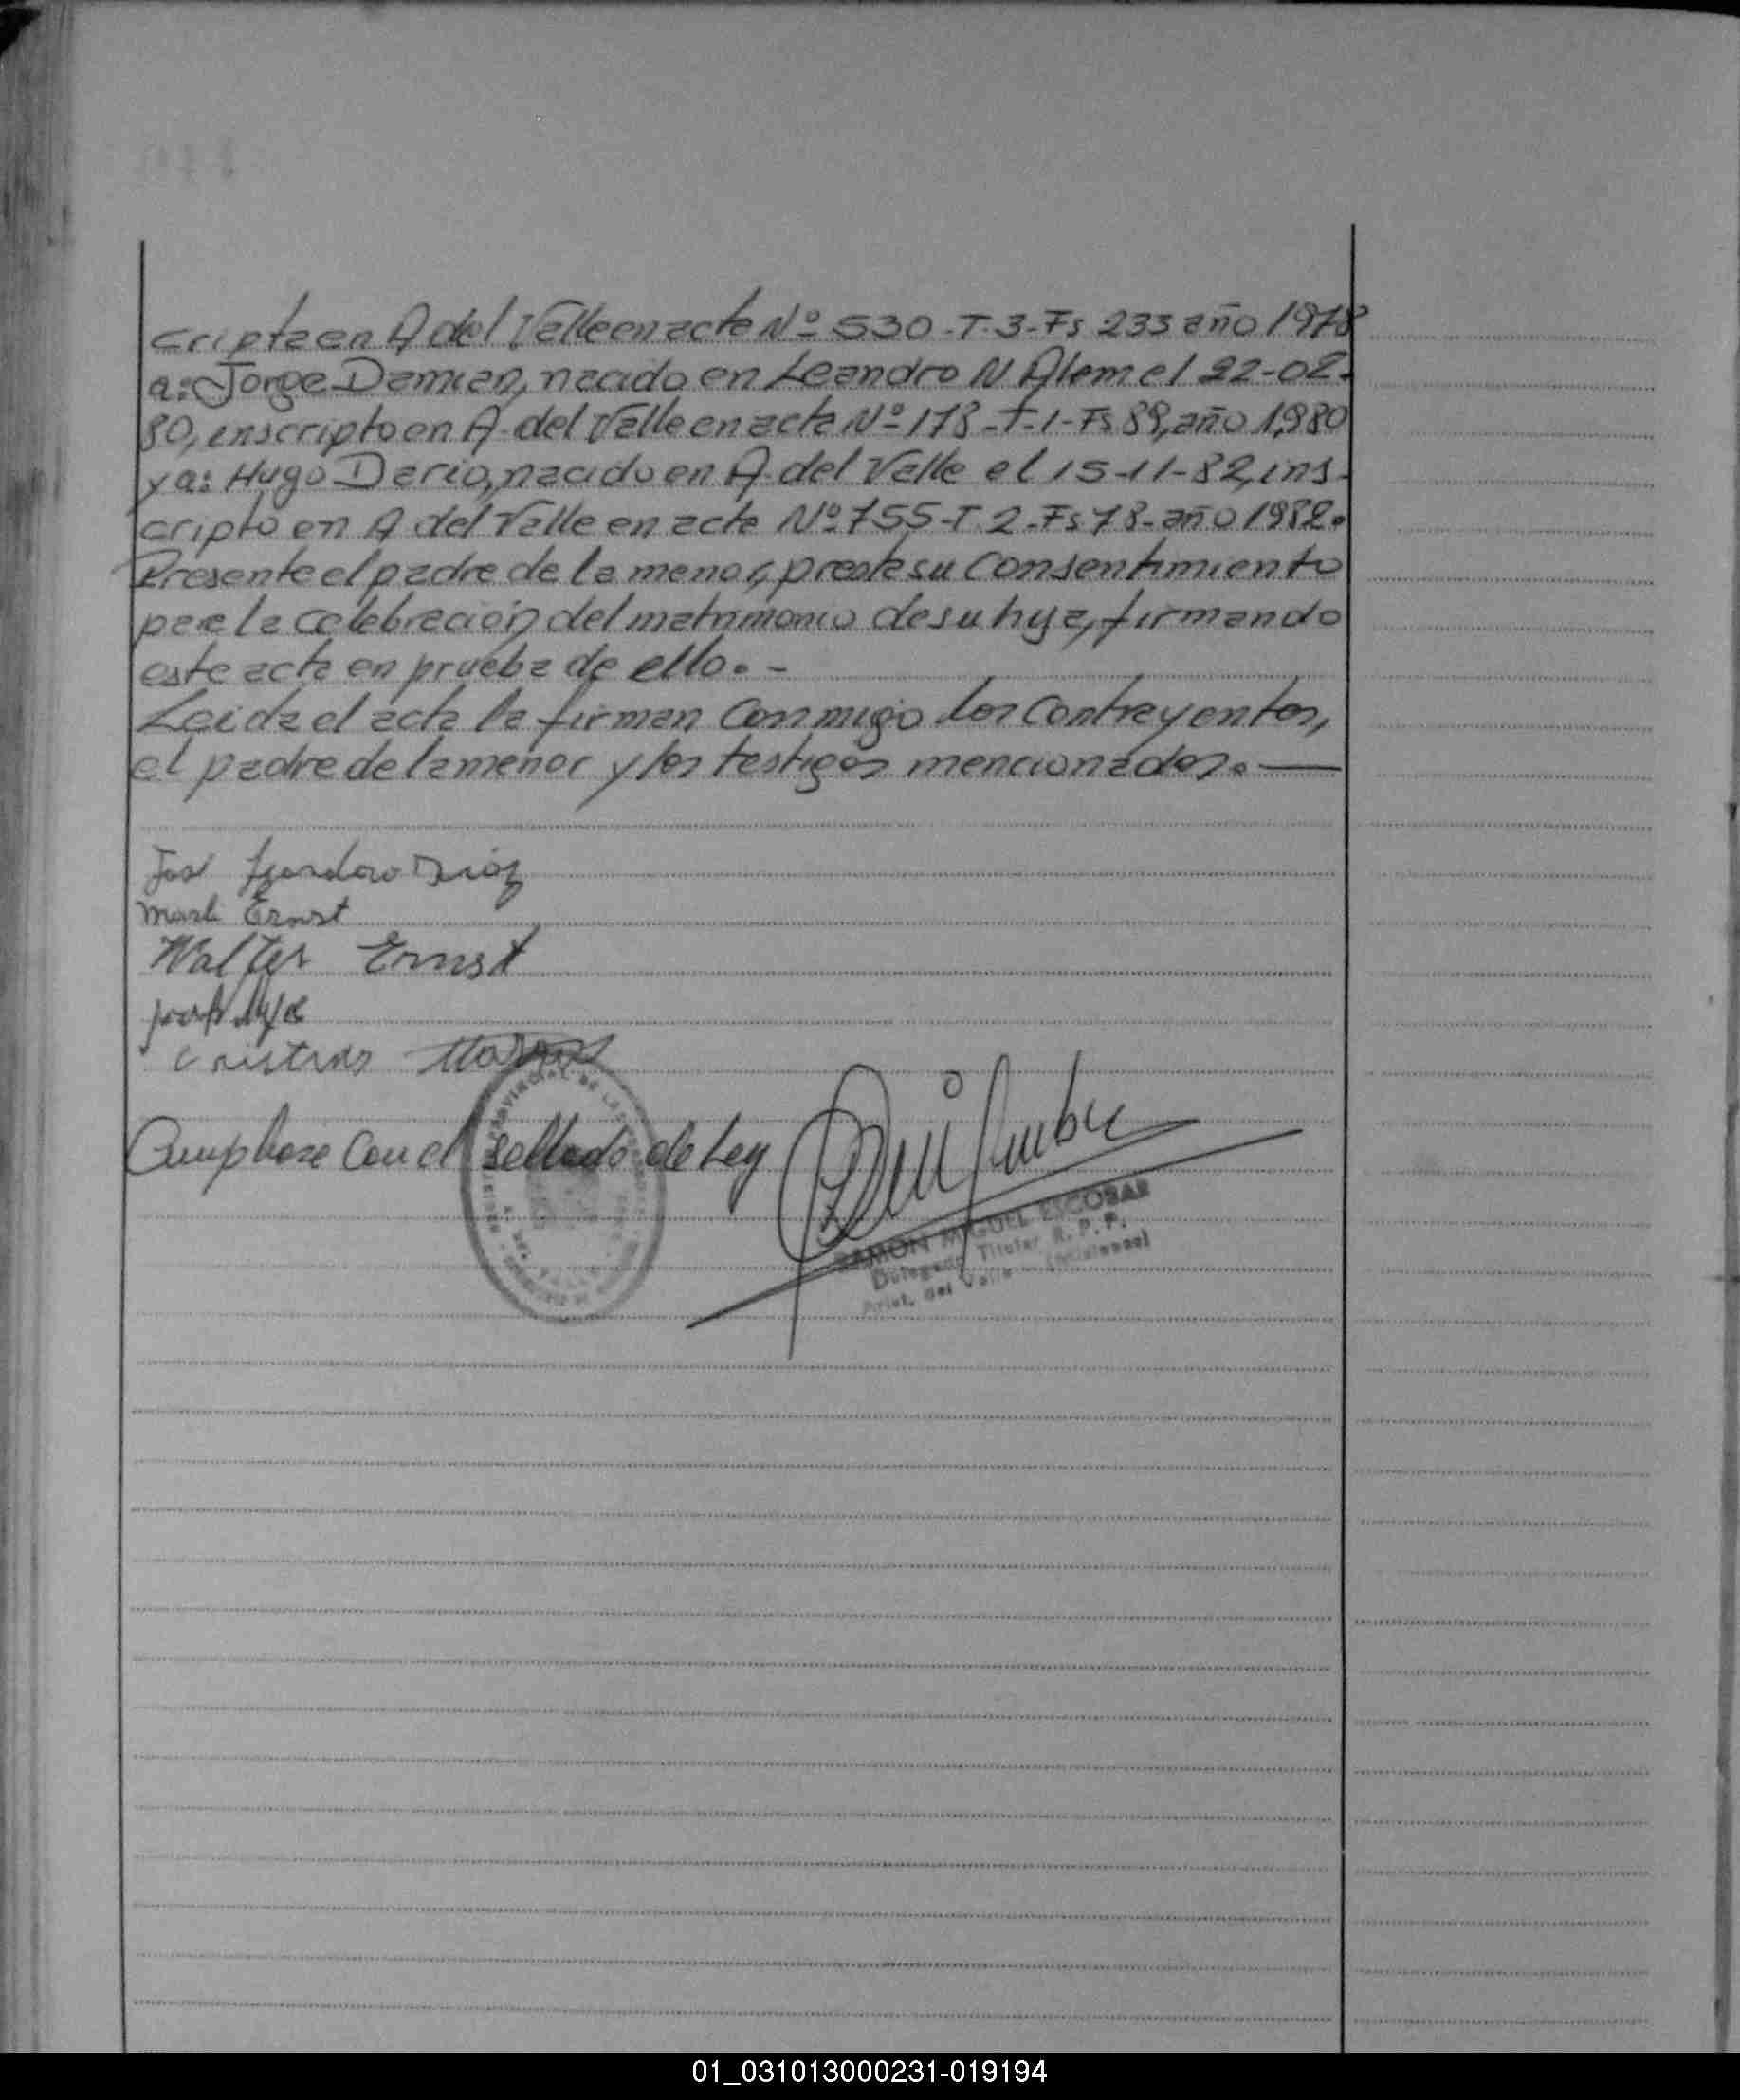 cripta en A del Valle en acta Nº 530-T.3-Fs 233 año 1978
a: Jorge Damian, nacido en Leandro N Alem el 22-02-
80, inscripto en A. del Valle en acta Nº 178-T-1-Fs 89, año 1,980
y a: Hugo Dario, nacido en A. del Valle el 15-11-82, ins-
cripto en A del Valle en acta Nº 755-T 2-Fs 78-año 1982.
Presente el padre de la menor, presta su consentimiento
para la celebración del matrimonio de su hija, firmando
este acta en prueba de ello.-
Leida el acta la firman conmigo los contrayentes,
el padre de la menor y los testigos mencionados.—
Diaz
Ernst
Walter Ernst
Cumplase con el sellado de Ley
RAMON MIGUEL ESCOBAR
Delegado Titular R. P. P.
Arist. del Valle (Misiones)
01_031013000231-019194